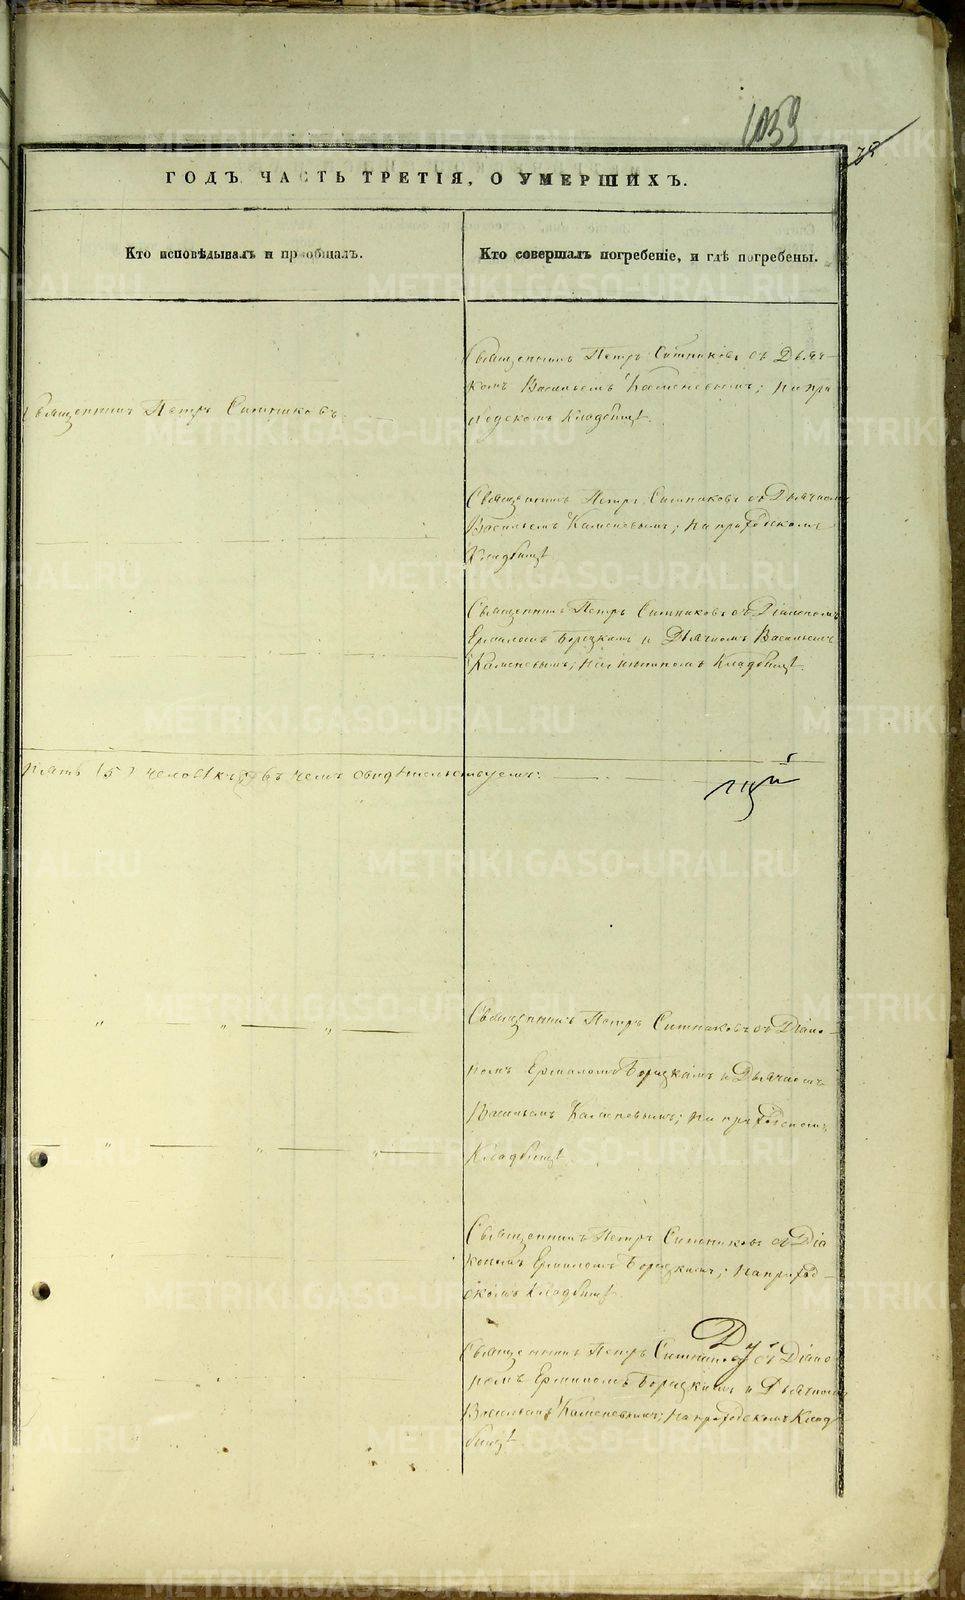 1059
78
ГОДЪ ЧАСТЬ ТРЕТІЯ, О УМЕРШИХЪ.
Кто исповѣдывалъ и пріобщалъ.
Кто совершалъ погребеніе, и гдѣ погребены.
Священникъ Петръ Ситниковъ съ Дьяч-
комъ Васильемъ Каменевымъ; На при
Священникъ Петръ Ситниковъ.
ходскомъ Кладбищѣ.
Священникъ Петръ Ситниковъ съ Дьячкомъ
Васильемъ Каменевымъ; На приходскомъ
Кладбищѣ
Священникъ Петръ Ситниковъ съ Діакономъ
Ермиломъ Борецкимъ и Дьячкомъ Васильемъ
Каменевымъ; На Кладбищѣ.
пять (5) человѣкъ; въ чемъ свидѣтельствуемъ:
Священникъ Петръ Ситниковъ съ Діако-
номъ Ермиломъ Борецкимъ и Дьячкомъ
Васильемъ Каменевымъ; На приходскомъ
Кладбищѣ.
Священникъ Петръ Ситниковъ съ Діа
кономъ Ермиломъ Борецкимъ; На приход-
скомъ Кладбищѣ.
Священникъ Петръ Ситниковъ съ Діако-
номъ Ермиломъ Борецкимъ и Дьячкомъ
Васильемъ Каменевымъ; На приходскомъ Клад
бищѣ.
METRIKI.GASO-URAL.RU